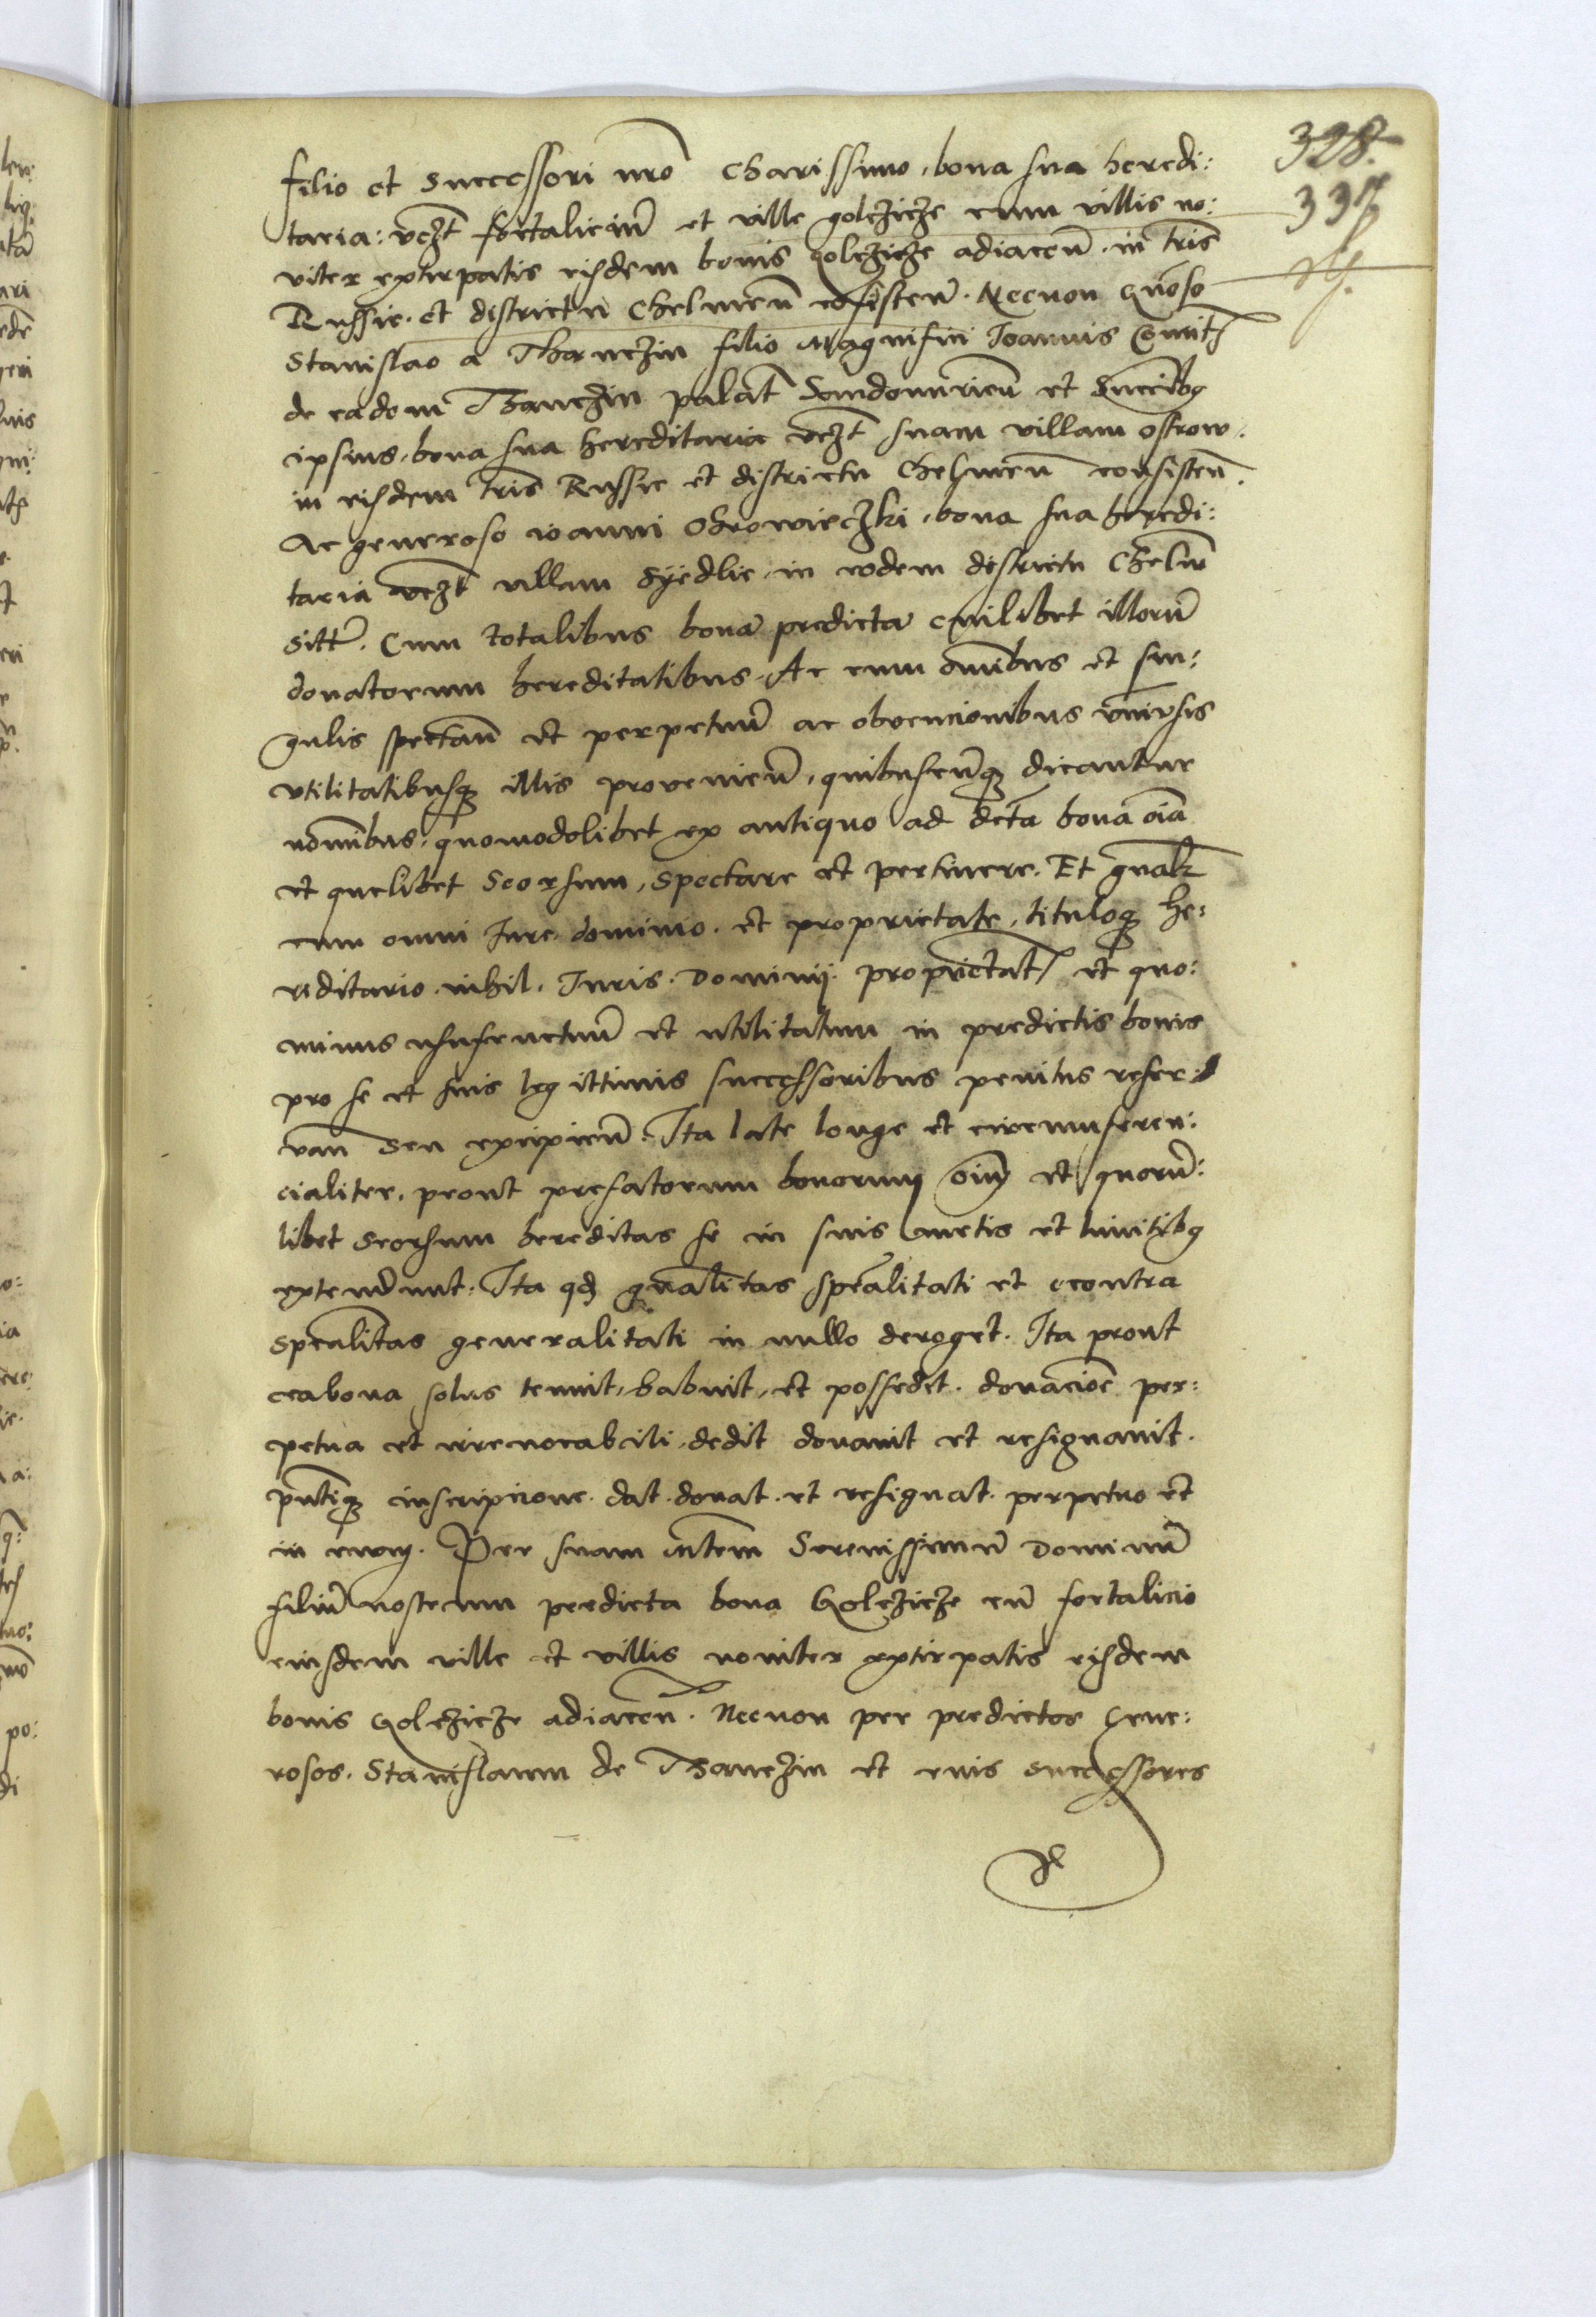 328.
337
filio et Successori nrõ Charissimo, bona sua heredi:
taria: vczt fortaliciũ et ville golczicze cum villis no:
viter extirpatis eisdem bonis Golczicze adiaceñ. in tris̃
Russie. et districtu Chelmeñ cõsisteñ. Necnon Gñoso
Stanislao a Thanczin filio Magnifici Joannis Comit(is)
de eadem Thanczin palat̃ Sandomirieñ et Succib(us)
ipsius, bona sua hereditaria vczt suam villam ostrow.
in eisdem tris̃ Russie et districtu Chelmeñ consisteñ.
Ac generoso ioanni Orchowieczki, bona sua heredi:
taria vczt villam Syedlie in eodem districtu Chelm̃
sitt̃. Cum totalibus bona predicta cuilibet illorũ
donatorum hereditatibus. Ac cum om̃ibus et sin:
gulis spectañ et perpetuũ ac obvencionibus vniv̾sis
vtilitatibusq(ue) illis provenieñ, quibuscũq(ue) dicantur
nom̃ibus, quomodolibet ex antiquo ad dcta bona oĩa
et quelibet Seorsum, Spectare et pertinere. Et gnalr̃
cum omni Jure dominio. et proprietate, tituloq(ue) he:
reditario. nihil. Juris. Dominij. proprietat(is) et quo:
minus usufructuũ et utilitatum in predictis bonis
pro se et suis legittimis successoribus penitus reser:
vañ Seu excipieñ. Ita late longe et circumferen:
cialiter, prout prefatorum bonorum oĩm et quorũ:
libet Seorsum hereditas se in suis metis et limitib(us)
extendunt. Ita qd gñalitas spẽalitati et econtra
spẽalitas generalitati in nullo deroget. Ita prout
ea bona solus tenuit, habuit, et possedit. donaciõe per:
petua et irrevocabili, dedit donavit et resignavit.
pñtiq(ue) inscripcione. dat. donat. et resignat. perpetuo et
in evum. Per suam Mtem̃ Serenissimũ Dominũ
filiũ nostrum predicta bona Golczicze cũ fortalicio
eiusdem ville et villis noviter extirpatis eisdem
bonis Golczicze adiaceñ. Necnon per predictos Gene:
rosos. Stanislaum de Thanczin et euis successores